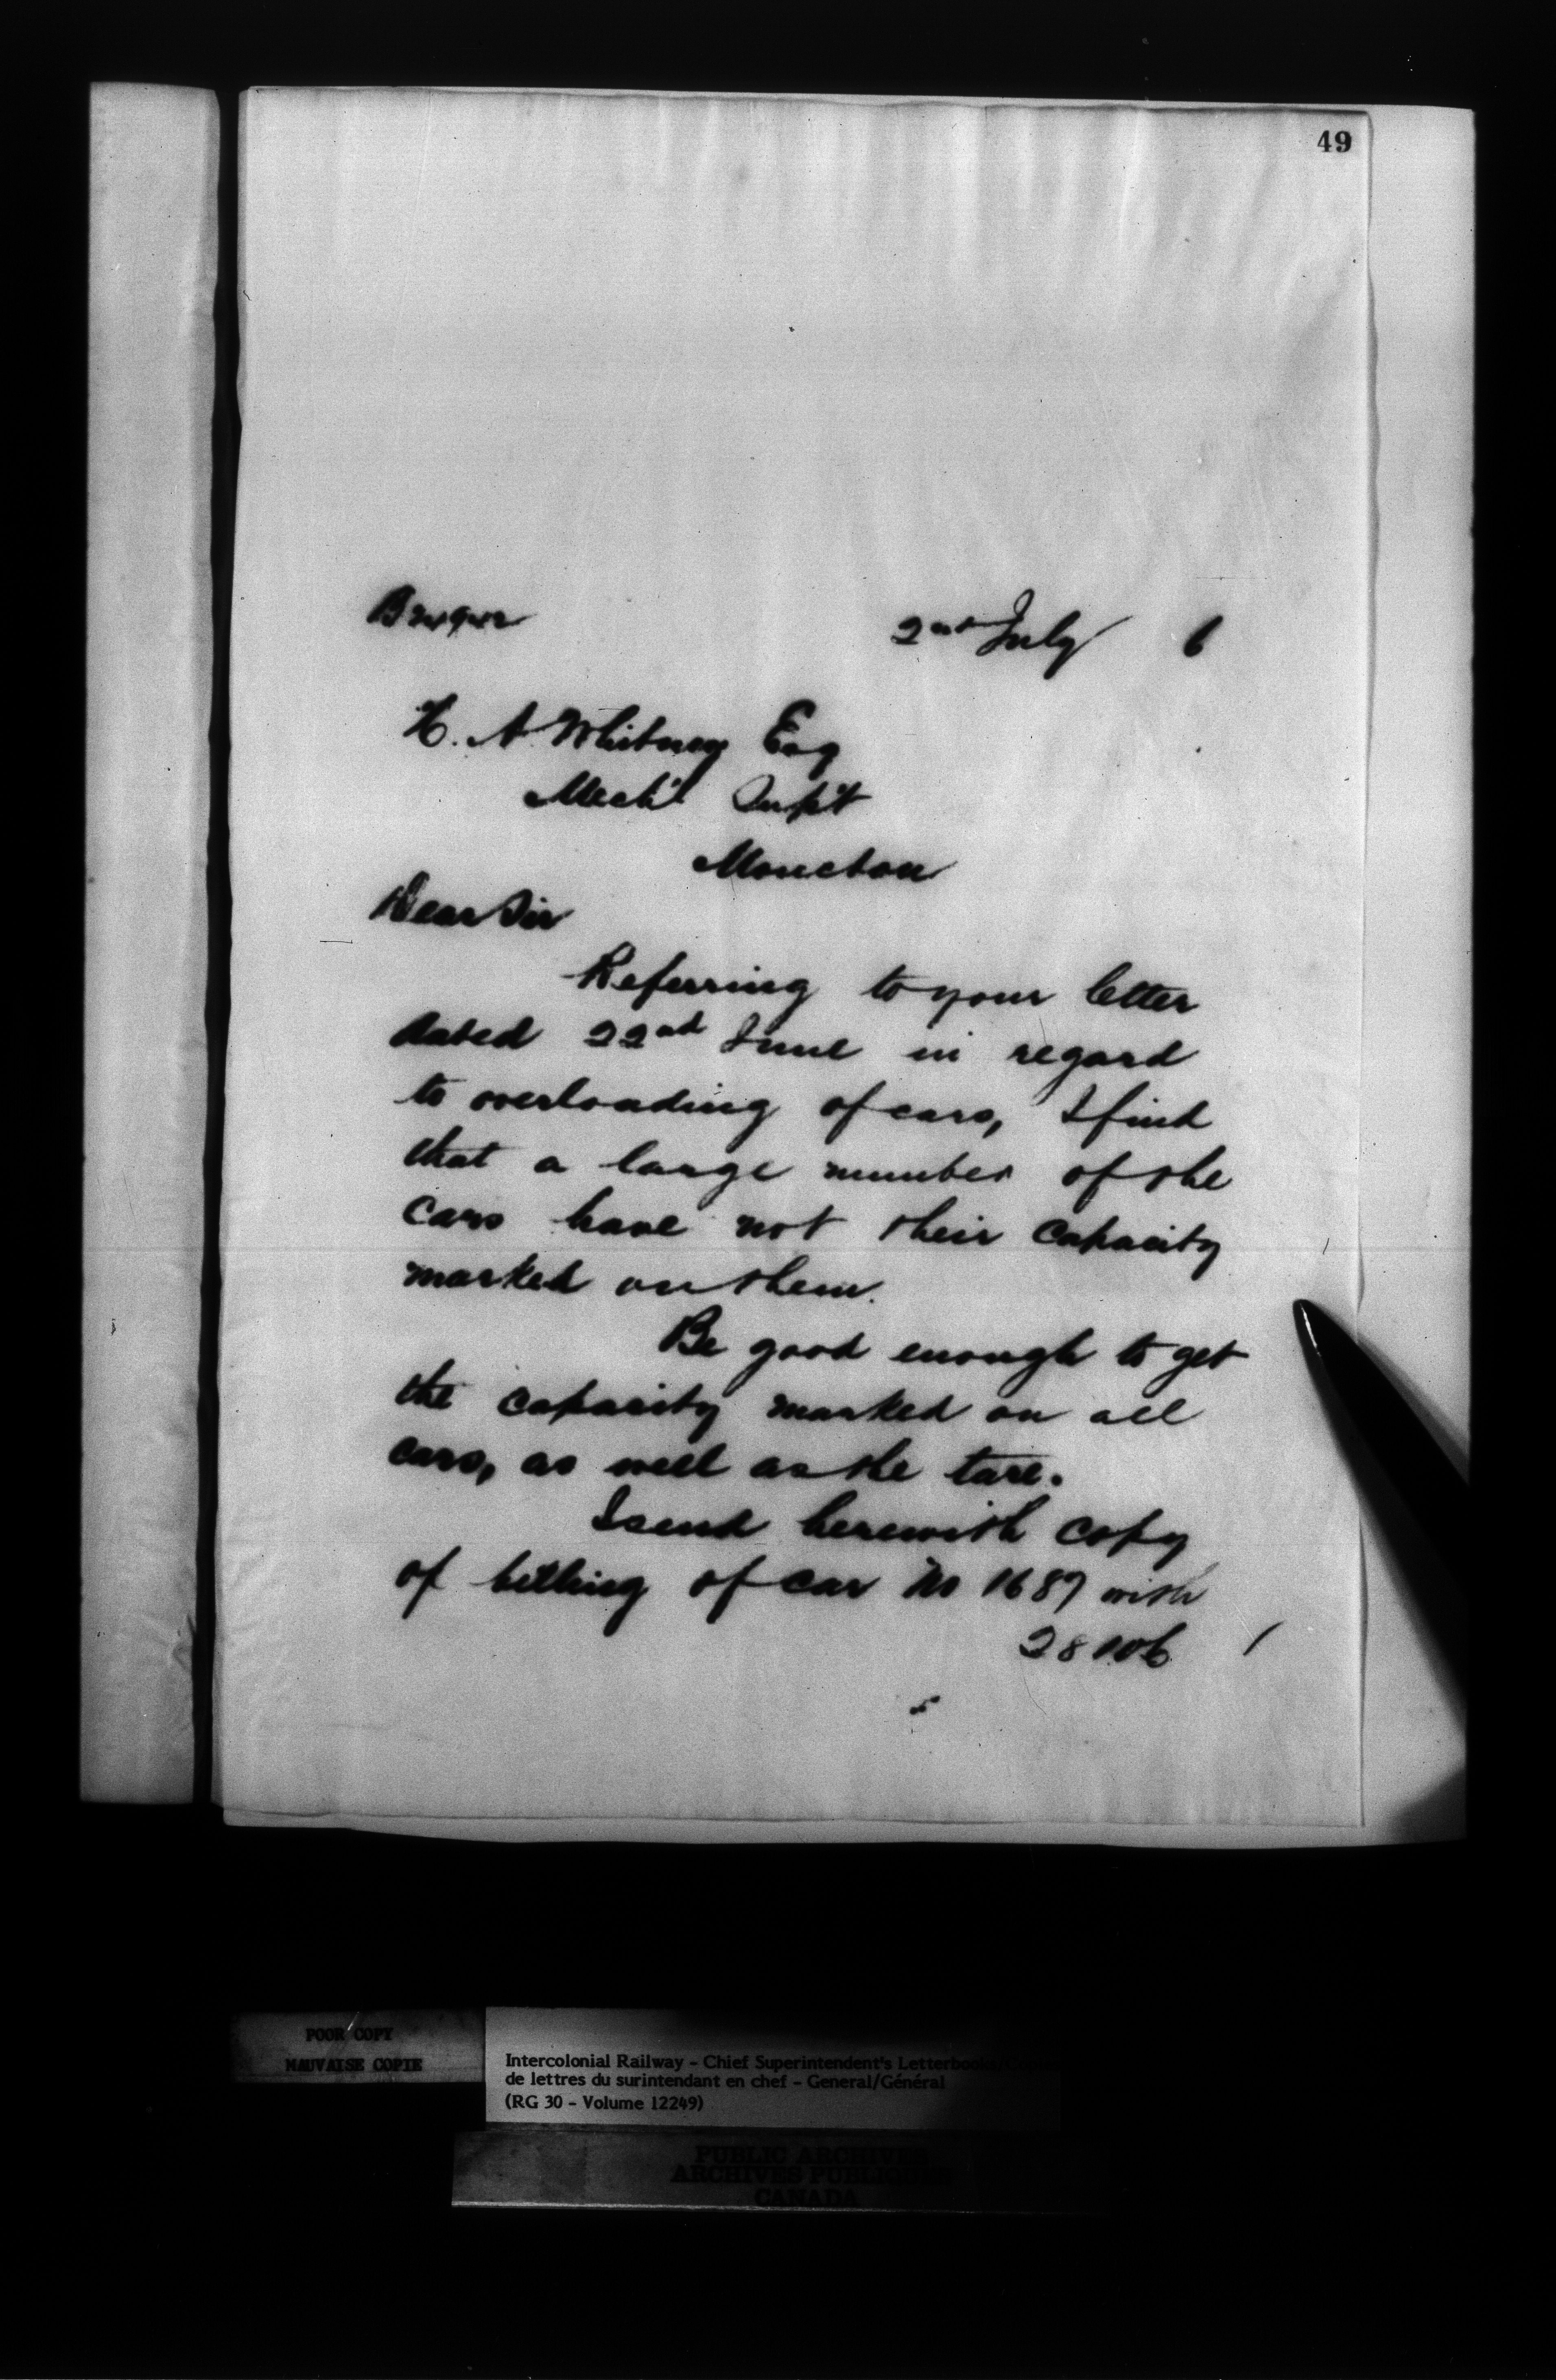 49
2nd July 6
H. A. Whitney Esq
Mech'l Sup't
Moncton
Dear Sir
Referring to your letter
dated 22nd June in regard
to overloading of cars, I find
that a large number of the
cars have not their capacity
marked on them.
Be good enough to get
the capacity marked on all
cars, as well as the tare.
I send herewith copy
of billing of car No 1687 with
28106
POOR COPY
MAUVAISE COPIE
Intercolonial Railway - Chief Superintendent's Letterbooks/
de lettres du surintendant en chef - General/Général
(RG 30 - Volume 12249)
PUBLIC ARCHIVES
ARCHIVES PUBLIQUES
CANADA